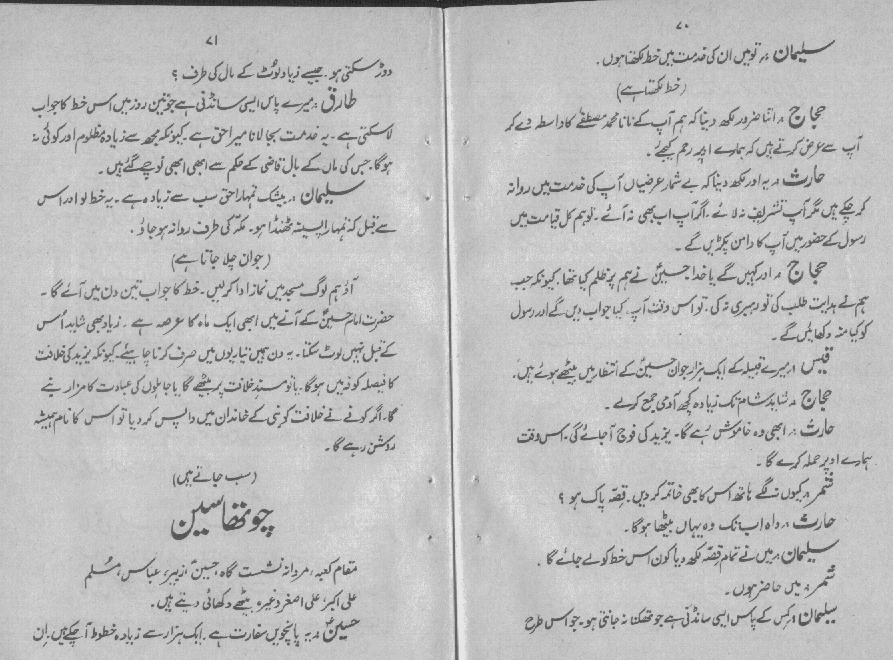 ۷۰
سلیمان :۔ تو میں ان کی خدمت میں خط لکھتا ہوں ۔
(خط لکھتا ہے)
حجاج :۔ اتنا ضرور لکھ دینا کہ ہم آپ کے نانا محمد مصطفےٰ کا واسطہ دے کر
آپ سے عرض کرتے ہیں کہ ہمارے اوپر رحم کیجئے ۔
حارث :۔ یہ اور لکھ دینا کہ بے شمار عرضیاں آپ کی خدمت میں روانہ
کر چکے ہیں مگر آپ تشریف نہ لائے ۔ اگر آپ اب بھی نہ آئے ۔ تو ہم کل قیامت میں
رسول کے حضور میں آپ کا دامن پکڑیں گے ۔
حجاج :۔ اور کہیں گے یا خدا حسینؑ نے ہم پر ظلم کیا تھا ۔ کیونکہ جب
ہم نے ہدایت طلب کی تو رہبری نہ کی ۔ تو اس وقت آپ کیا جواب دیں گے اور رسول
کو کیا منہ دکھائیں گے ۔
قیس :۔ میرے قبیلہ کے ایک ہزار جوان حسینؑ کے انتظار میں بیٹھے ہوئے ہیں ۔
حجاج :۔ شاید شام تک زیادہ کچھ آدمی جمع کرے ۔
حارث :۔ ابھی وہ خاموش رہے گا ۔ یزید کی فوج آ جائے گی ۔ اس وقت
ہمارے اوپر حملہ کرے گا ۔
شمر :۔ کیوں نہ لگے ہاتھ اس کا بھی خاتمہ کر دیں ۔ قصہ پاک ہو ؟
حارث :۔ واہ اب تک وہ یہاں بیٹھا ہوگا ۔
سلیمان :۔ میں نے تمام قصّہ لکھ دیا کون اس خط کو لے جائے گا ۔
شمر :۔ میں حاضر ہوں ۔
سلیمان :۔ کس کے پاس ایسی سانڈنی ہے جو تھکنا نہ جانتی ہو ۔ جو اس طرح
۷۱
دوڑ سکتی ہو ۔ جیسے زیاد لوُٹ کے مال کی طرف ؟
طارق :۔ میرے پاس ایسی سانڈنی ہے جو تین روز میں اس خط کا جواب
لا سکتی ہے ۔ یہ خدمت بجا لانا میرا حق ہے ۔ کیونکہ مجھ سے زیادہ مظلوم اور کوئی نہ
ہوگا ۔ جس کی ماں کے بال قاضی کے حکم سے ابھی ابھی نوچے گئے ہیں ۔
سلیمان :۔ بیشک تمہارا حق سب سے زیادہ ہے ۔ یہ خط لو اور اس
سے قبل کہ تمہارا پسینہ ٹھنڈا ہو ۔ مکّہ کی طرف روانہ ہو جاؤ ۔
(جوان چلا جاتا ہے)
آؤ ہم لوگ مسجد میں نماز ادا کر لیں ۔ خط کا جواب تین دن میں آئے گا ۔
حضرت امام حسینؑ کے آنے میں ابھی ایک ماہ کا عرصہ ہے ۔ زیاد بھی شاید اُس
کے قبل نہیں لوٹ سکتا ۔ یہ دن ہمیں تیاریوں میں صرف کرنا چاہیئے ۔ کیونکہ یزید کی خلافت
کا فیصلہ کوفہ میں ہوگا ۔ یا تو مسندِ خلافت پر بیٹھے گا یا جاہلوں کی عبادت کا مزار بنے
گا ۔ اگر کوفے نے خلافت کو نبی کے خاندان میں واپس کر دیا تو اس کا نام ہمیشہ
روشن رہے گا ۔
(سب جاتے ہیں)
چوتھا سین
مقام کعبہ ، مردانہ نشست گاہ ، حسینؑ ، زبیر ، عباس ، مسُلم
علی اکبر ، علی اصغر وغیرہ بیٹھے دکھائی دیتے ہیں ۔
حسینؑ :۔ یہ پانچویں سفارت ہے ۔ ایک ہزار سے زیادہ خطوط آ چکے ہیں ۔ اِن